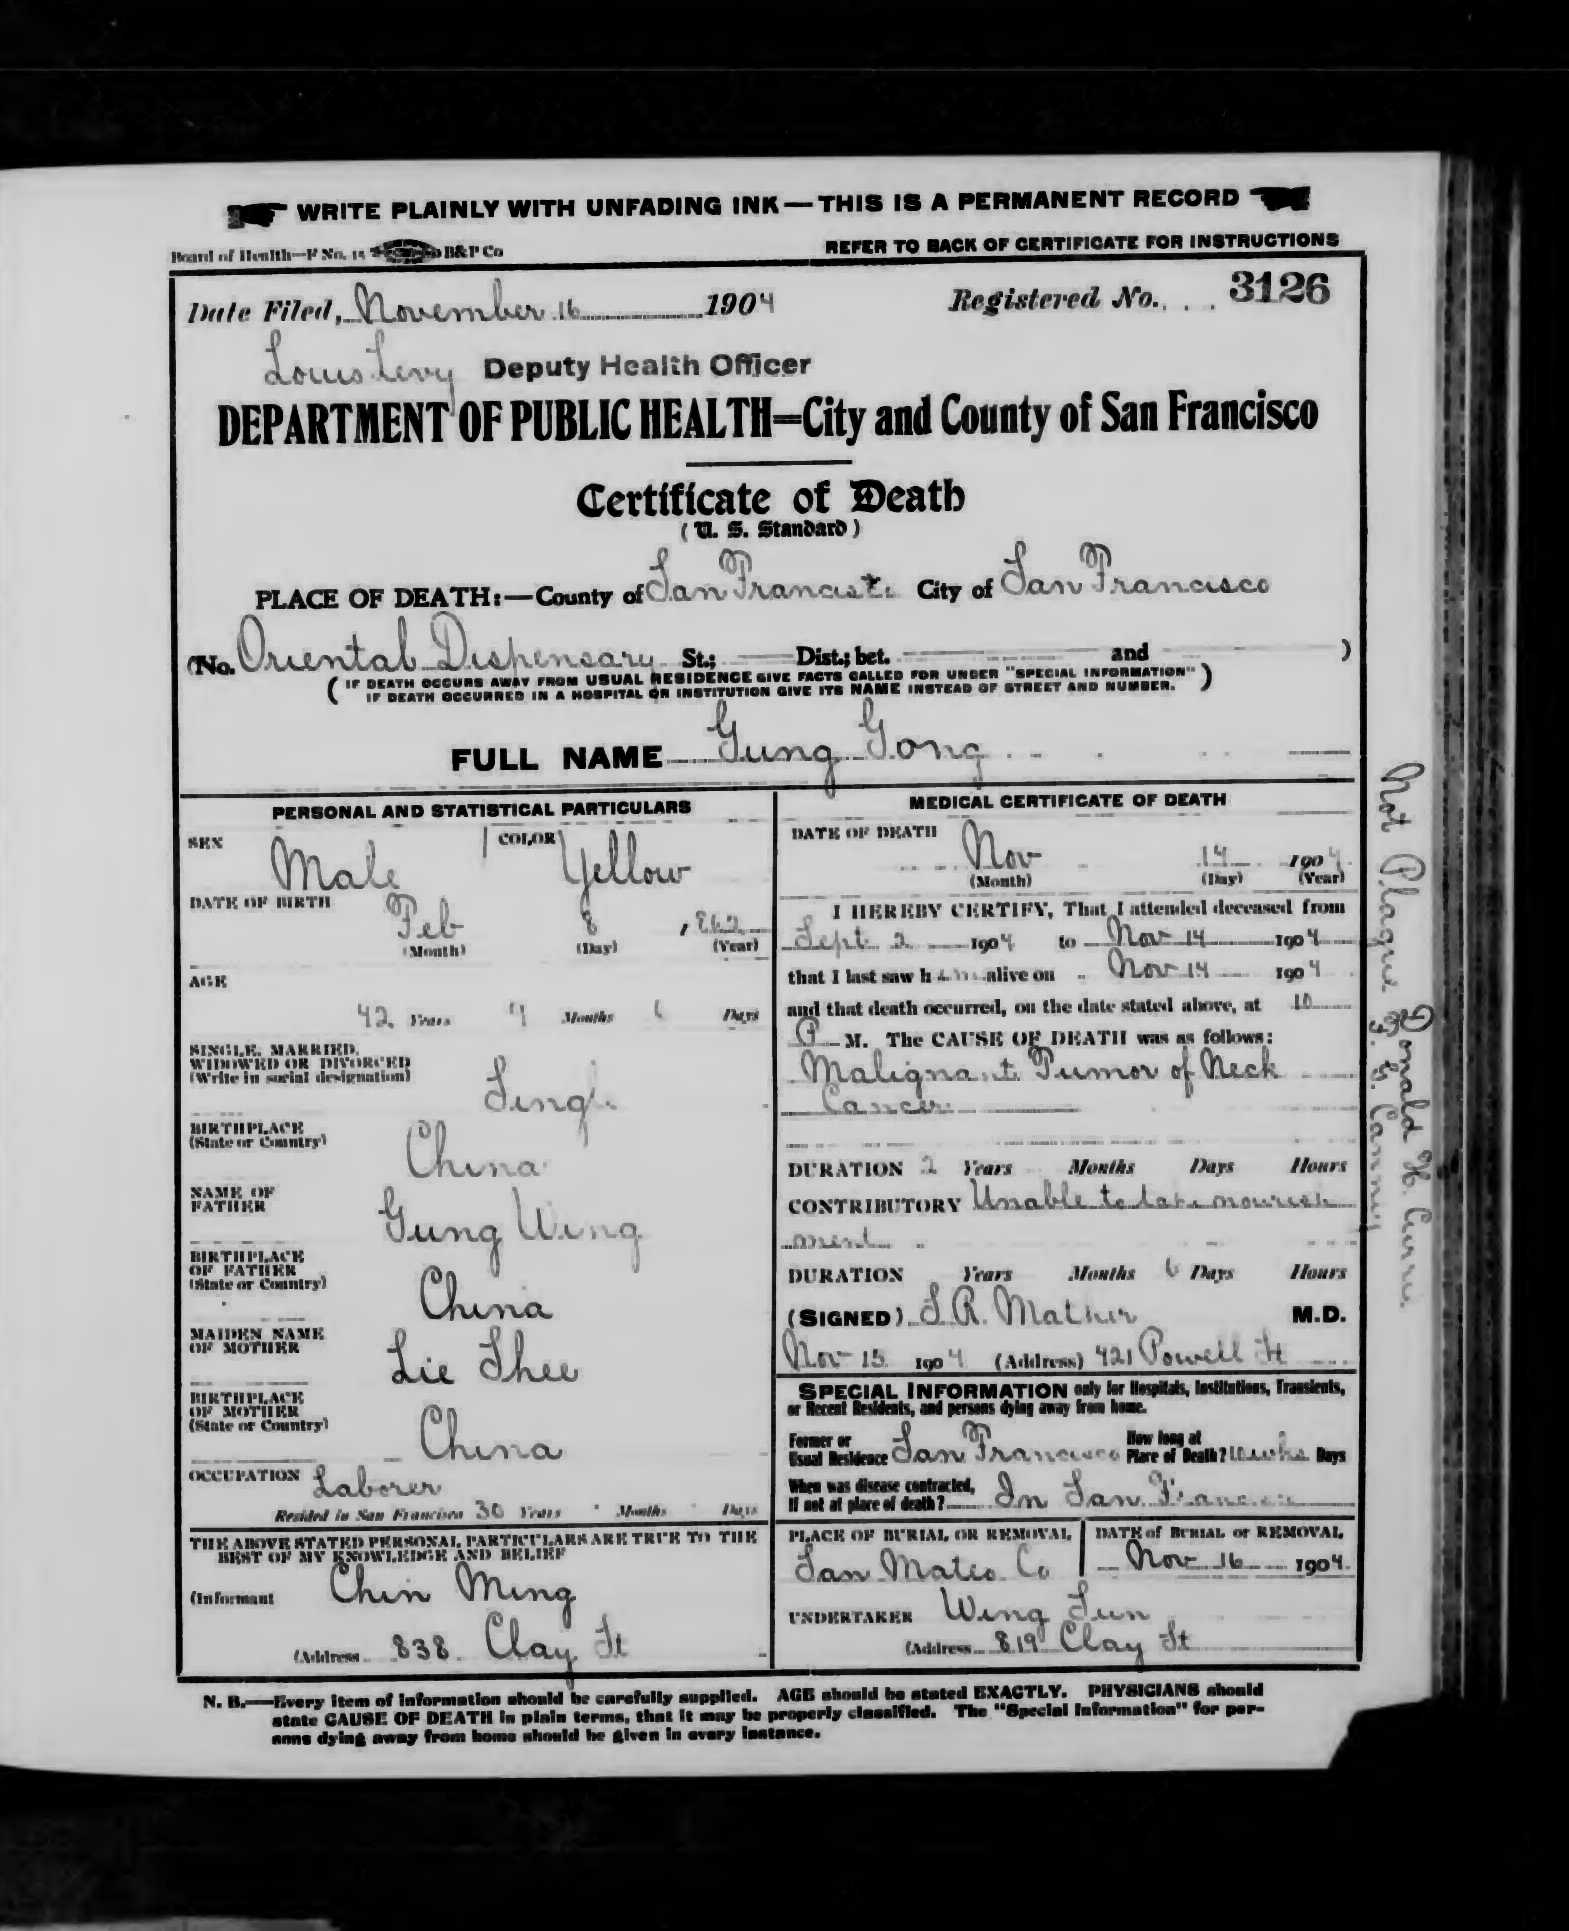 WRITE PLAINLY WITH UNFADING INK — THIS IS A PERMANENT RECORD
Board of Health—F No. 15 B&P Co
REFER TO BACK OF CERTIFICATE FOR INSTRUCTIONS
Date Filed, November 16 1904 Registered No. 3126
Louis Levy Deputy Health Officer
DEPARTMENT OF PUBLIC HEALTH=City and County of San Francisco
Certificate of Death
(U. S. Standard)
PLACE OF DEATH:—County of San Francisco City of San Francisco
(No. Oriental Dispensary St.; Dist.; bet. and )
( IF DEATH OCCURS AWAY FROM USUAL RESIDENCE GIVE FACTS CALLED FOR UNDER "SPECIAL INFORMATION" )
IF DEATH OCCURRED IN A HOSPITAL OR INSTITUTION GIVE ITS NAME INSTEAD OF STREET AND NUMBER.
FULL NAME Gung Gong
PERSONAL AND STATISTICAL PARTICULARS
SEX Male COLOR Yellow
DATE OF BIRTH Feb 8 , 862
(Month) (Day) (Year)
AGE
42 Years Months 6 Days
SINGLE, MARRIED,
WIDOWED OR DIVORCED
(Write in social designation)
Singl
BIRTHPLACE
(State or Country)
China
NAME OF
FATHER
Gung Wing
BIRTHPLACE
OF FATHER
(State or Country)
China
MAIDEN NAME
OF MOTHER
Lie Shee
BIRTHPLACE
OF MOTHER
(State or Country)
China
OCCUPATION Laborer
Resided in San Francisco 30 Years Months Days
THE ABOVE STATED PERSONAL PARTICULARS ARE TRUE TO THE
BEST OF MY KNOWLEDGE AND BELIEF
(Informant Chin Ming
(Address 838 Clay St
MEDICAL CERTIFICATE OF DEATH
DATE OF DEATH Nov 14 1904
(Month) (Day) (Year)
I HEREBY CERTIFY, That I attended deceased from
Sept 2 1904 to Nov 14 1904
that I last saw h im alive on Nov 14 1904
and that death occurred, on the date stated above, at 10
P M. The CAUSE OF DEATH was as follows:
Malignant Tumor of Neck
Cancer
DURATION 2 Years Months Days Hours
CONTRIBUTORY Unable to take nourish
ment
DURATION Years Months 6 Days Hours
(SIGNED) S. R. Mather M.D.
Nov 15 1904 (Address) 421 Powell St
SPECIAL INFORMATION only for Hospitals, Institutions, Transients,
or Recent Residents, and persons dying away from home.
Former or
Usual Residence San Francisco How long at
Place of Death? Days
When was disease contracted,
If not at place of death? In San Francisco
PLACE OF BURIAL OR REMOVAL DATE of BURIAL or REMOVAL
San Mateo Co Nov 16 1904
UNDERTAKER Wing Sun
(Address 819 Clay St
N. B.—Every item of information should be carefully supplied. AGE should be stated EXACTLY. PHYSICIANS should
state CAUSE OF DEATH in plain terms, that it may be properly classified. The "Special Information" for per-
sons dying away from home should be given in every instance.
Not Plague
Donald H. Currie